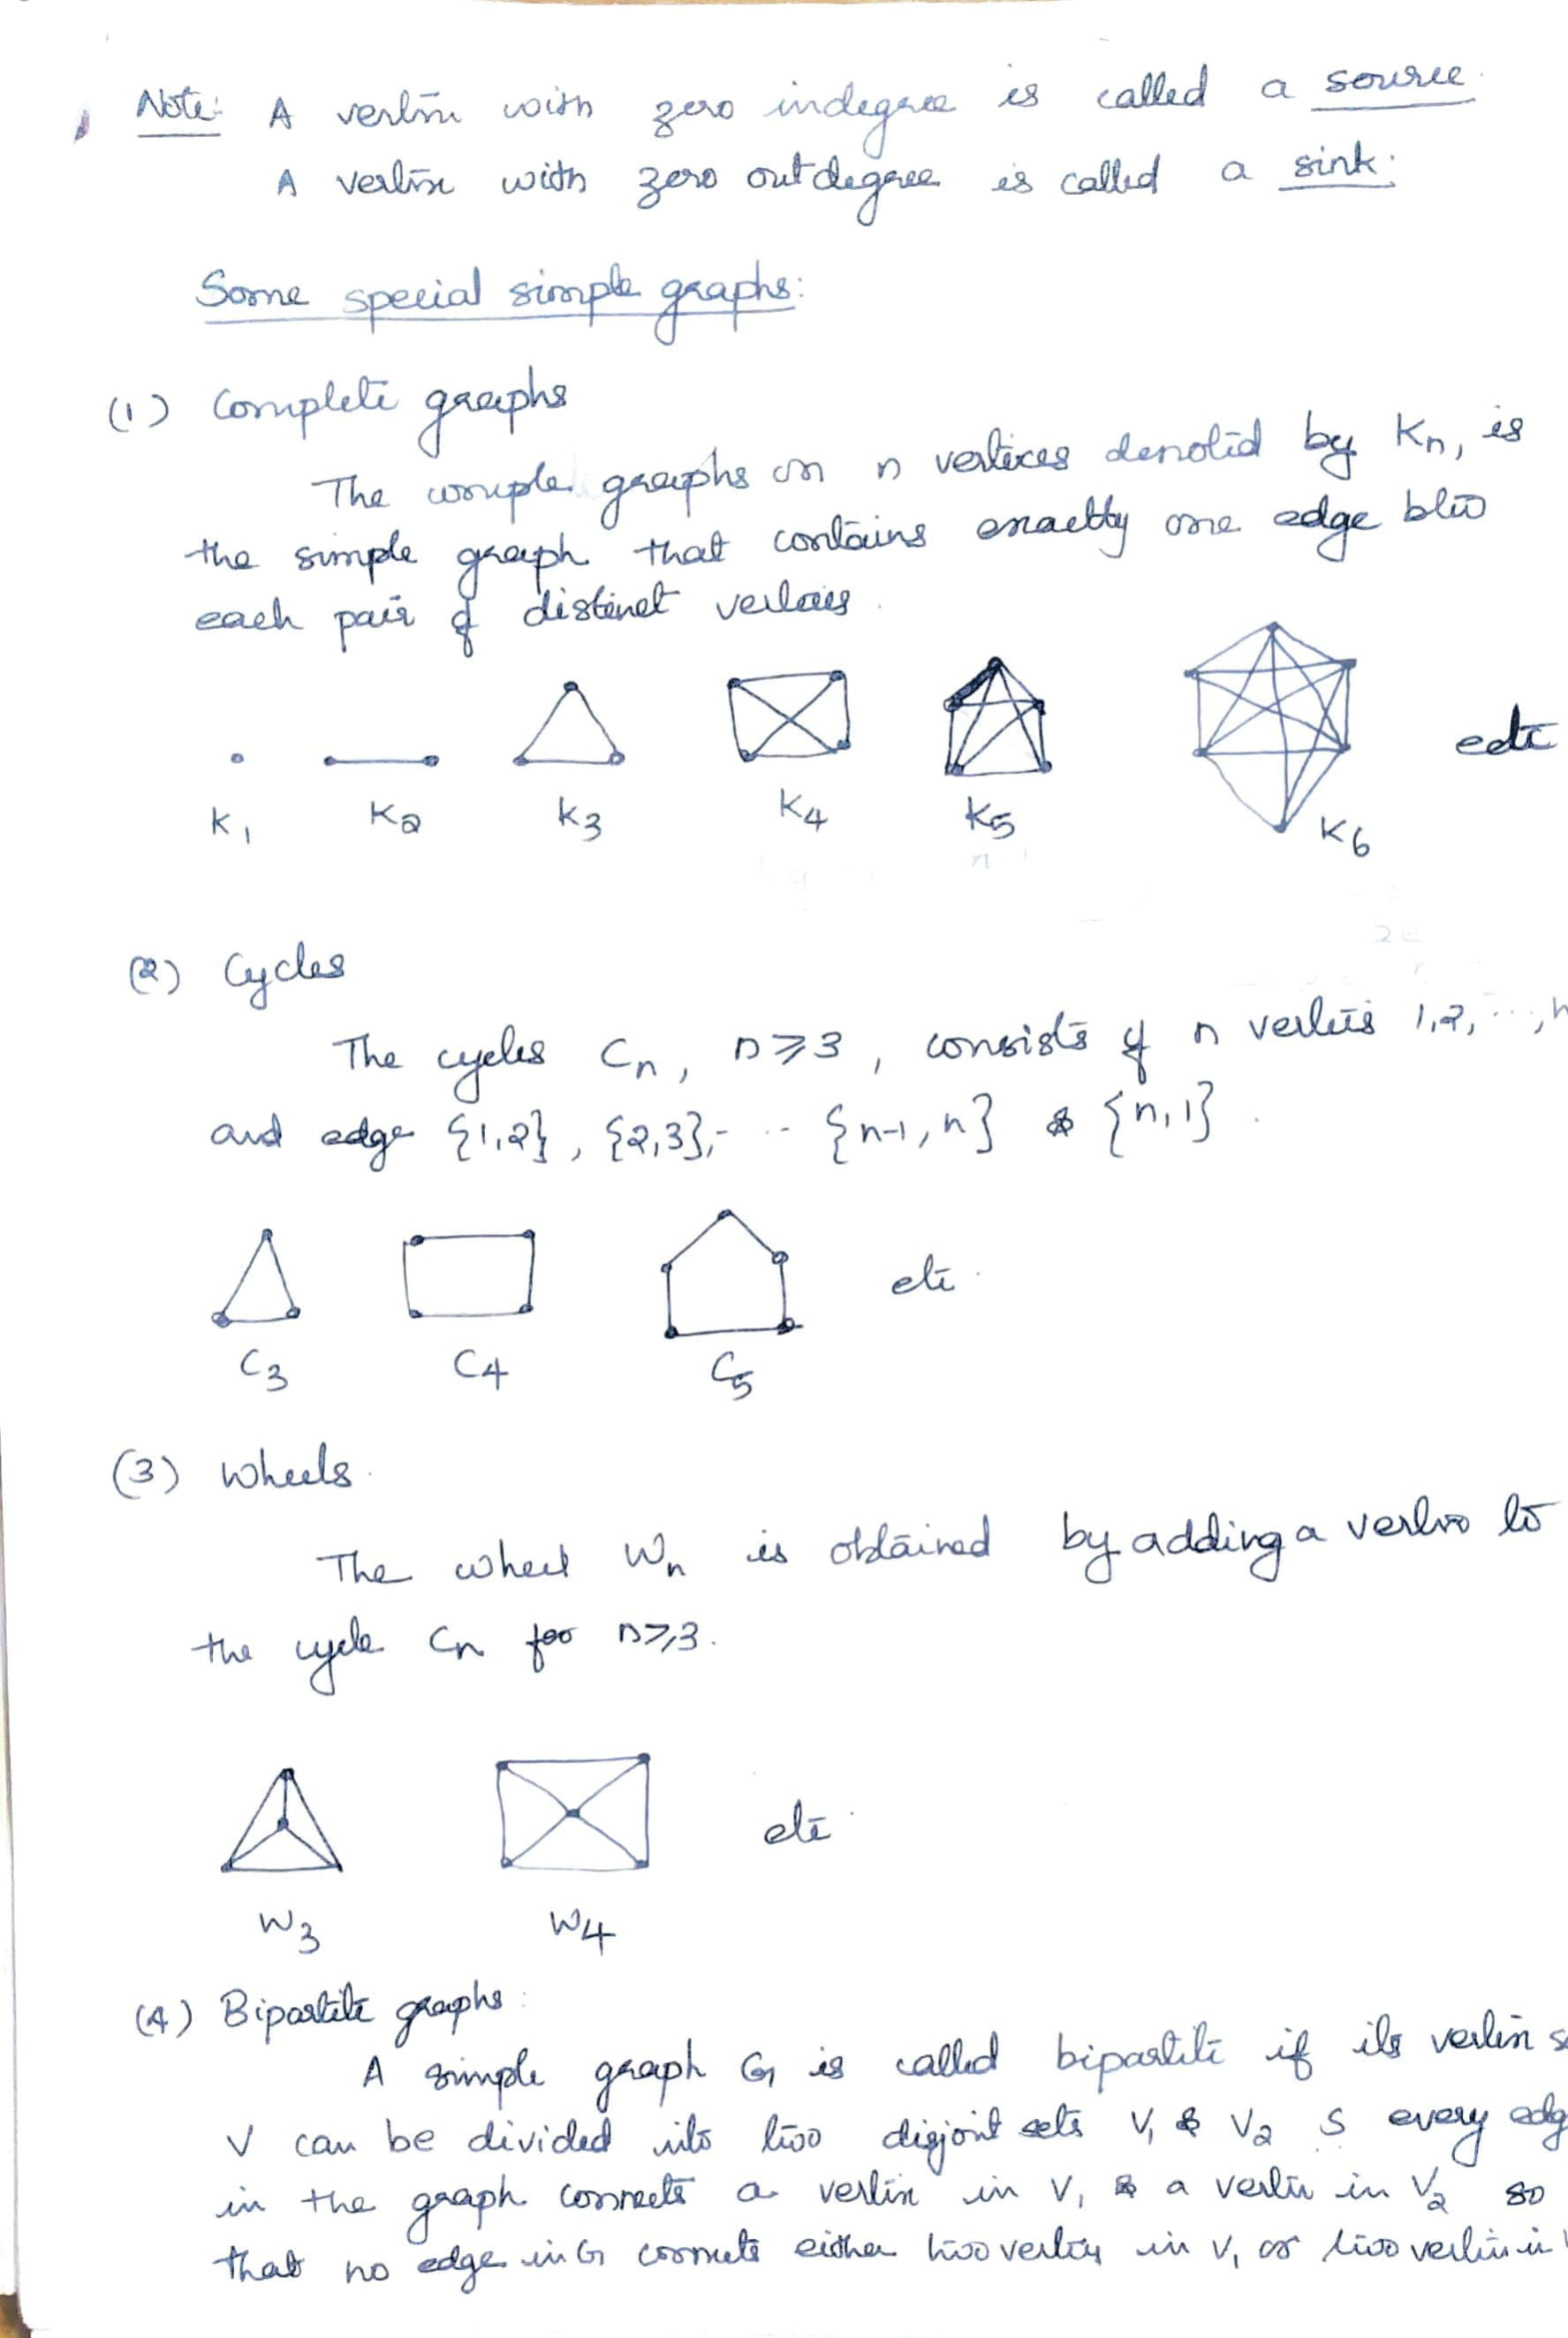 Note: A vertex with zero indegree is called a source.
A vertex with zero outdegree is called a sink.
Some special simple graphs:
(1) Complete graphs
The comple graphs on n vertices denoted by Kn, is
the simple graph that contains exactly one edge b/w
each pair of distinct vertices.
K1 K2 K3 K4 K5 K6 etc
(2) Cycles
The cycles Cn, n≥3, consists of n vertices 1,2,...,n
and edge {1,2}, {2,3},- -- {n-1,n} & {n,1}.
C3 C4 C5 etc.
(3) Wheels.
The wheel Wn is obtained by adding a vertex to
the cycle Cn for n≥3.
W3 W4 etc.
(4) Bipartite graphs:
A simple graph G is called bipartite if its vertex s
V can be divided into two disjoint sets V1 & V2 S every edg
in the graph connects a vertex in V1 & a vertex in V2 so
that no edge in G connects either two vertices in V1 or two vertices in